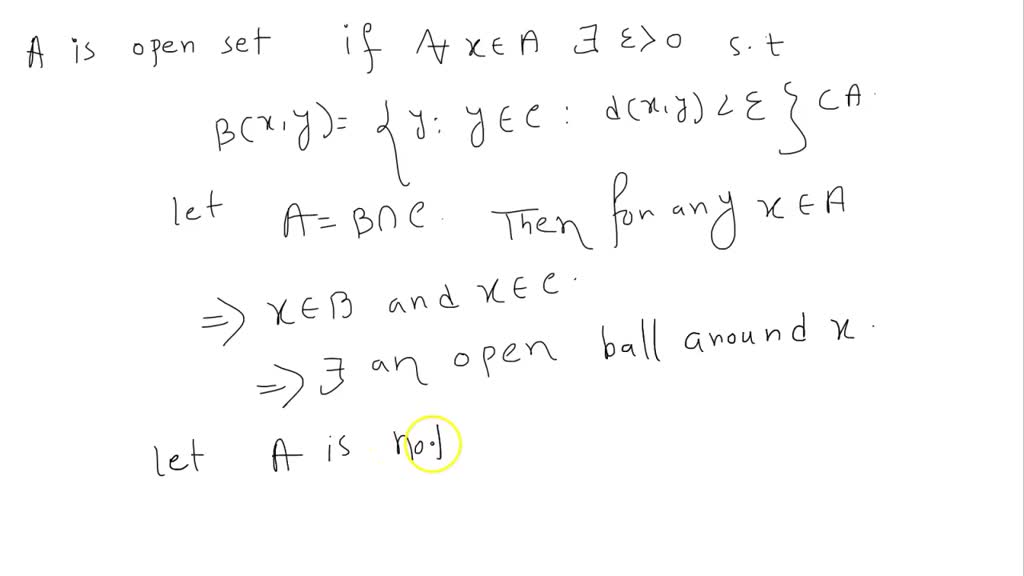 A is open set if ∀ x∈A ∃ ε>0 s.t
B(x,y)= { y: y∈C : d(x,y) < ε } ⊂ A.
let A = B∩C. Then for any x∈A
⇒ x∈B and x∈C.
⇒ ∃ an open ball around x.
let A is not